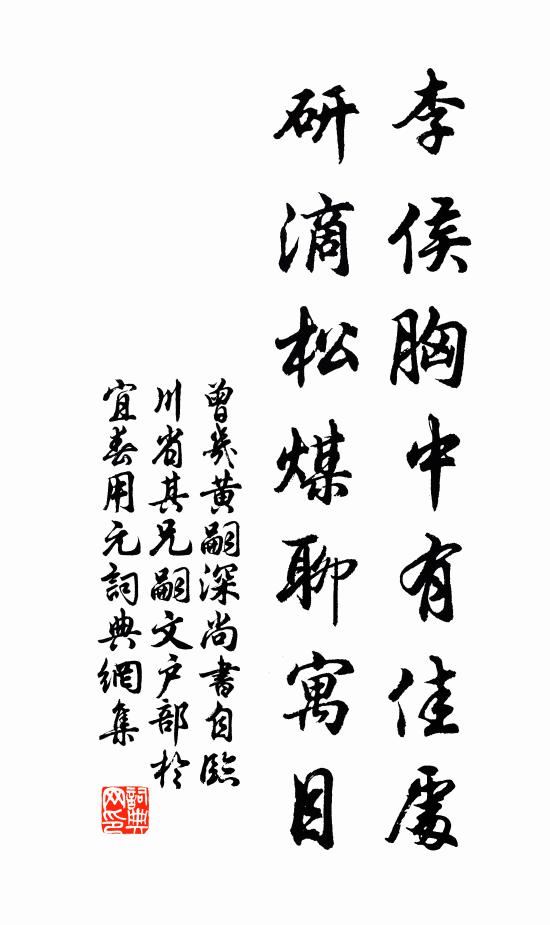 李侯胸中有佳處
研滴松煤聊寓目
曾幾黃嗣深尚書自臨
川省其兄嗣文户部於
宜春用元詞典網集
詞典
网印